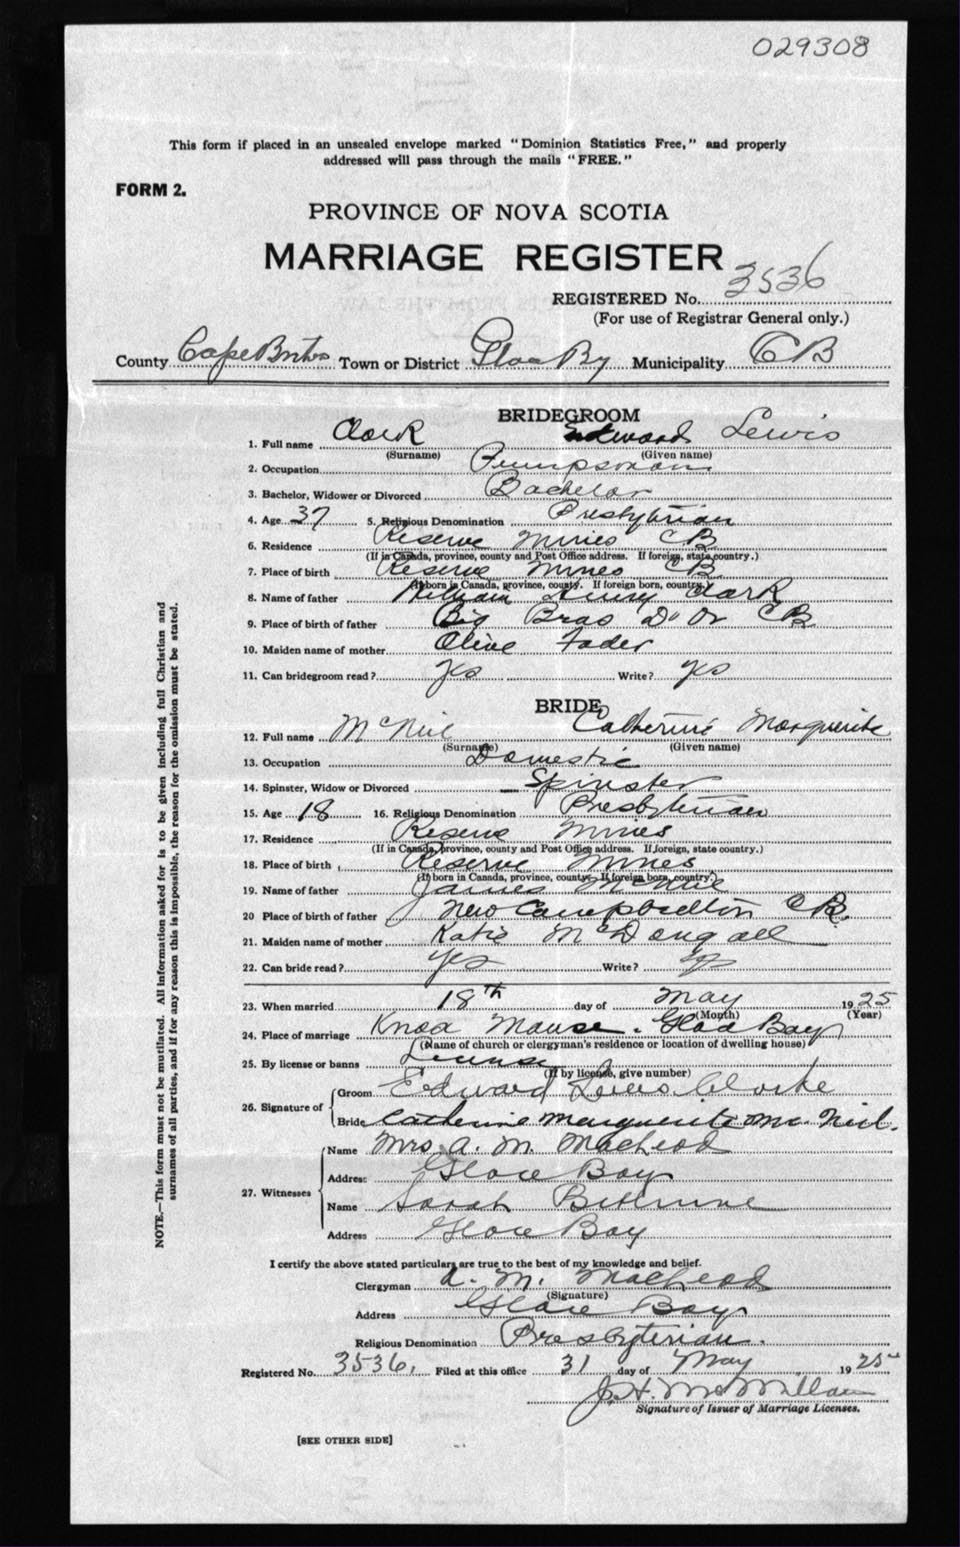 029308
This form if placed in an unsealed envelope marked "Dominion Statistics Free," and properly
addressed will pass through the mails "FREE."
FORM 2.
PROVINCE OF NOVA SCOTIA
MARRIAGE REGISTER
REGISTERED No. 3536
(For use of Registrar General only.)
County Cape Breton Town or District Glace Bay Municipality CB
BRIDEGROOM
1. Full name Clark Edward Lewis
(Surname) (Given name)
2. Occupation Pumpsman
3. Bachelor, Widower or Divorced Bachelor
4. Age 37 5. Religious Denomination Presbyterian
6. Residence Reserve Mines CB
(If in Canada, province, county and Post Office address. If foreign, state country.)
7. Place of birth Reserve Mines CB
(If born in Canada, province, county. If foreign born, country.)
8. Name of father William Henry Clark
9. Place of birth of father Big Bras D'Or CB
10. Maiden name of mother Olive Fader
11. Can bridegroom read? Yes Write? Yes
BRIDE
12. Full name McNeil Catherine Marguerite
(Surname) (Given name)
13. Occupation Domestic
14. Spinster, Widow or Divorced Spinster
15. Age 18 16. Religious Denomination Presbyterian
17. Residence Reserve Mines
(If in Canada, province, county and Post Office address. If foreign, state country.)
18. Place of birth Reserve Mines
(If born in Canada, province, county. If foreign born, country.)
19. Name of father James McNeil
20 Place of birth of father New Campbellton CB.
21. Maiden name of mother Katie McDougall
22. Can bride read? Yes Write? Yes
23. When married 18th day of May 1925
(Month) (Year)
24. Place of marriage Knox Manse. Glace Bay
(Name of church or clergyman's residence or location of dwelling house)
25. By license or banns License
(If by license, give number)
26. Signature of Groom Edward Lewis Clarke
Bride Catherine Marguerite McNeil.
27. Witnesses Name Mrs. A. M. MacLeod
Address Glace Bay
Name Sarah
Address Glace Bay
I certify the above stated particulars are true to the best of my knowledge and belief.
Clergyman A. M. MacLeod
(Signature)
Address Glace Bay
Religious Denomination Presbyterian.
Registered No. 3536, Filed at this office 31 day of May 1925
J. H. McMillan
Signature of Issuer of Marriage Licenses.
[SEE OTHER SIDE]
NOTE.—This form must not be mutilated. All information asked for is to be given including full Christian and
surnames of all parties, and if for any reason this is impossible, the reason for the omission must be stated.